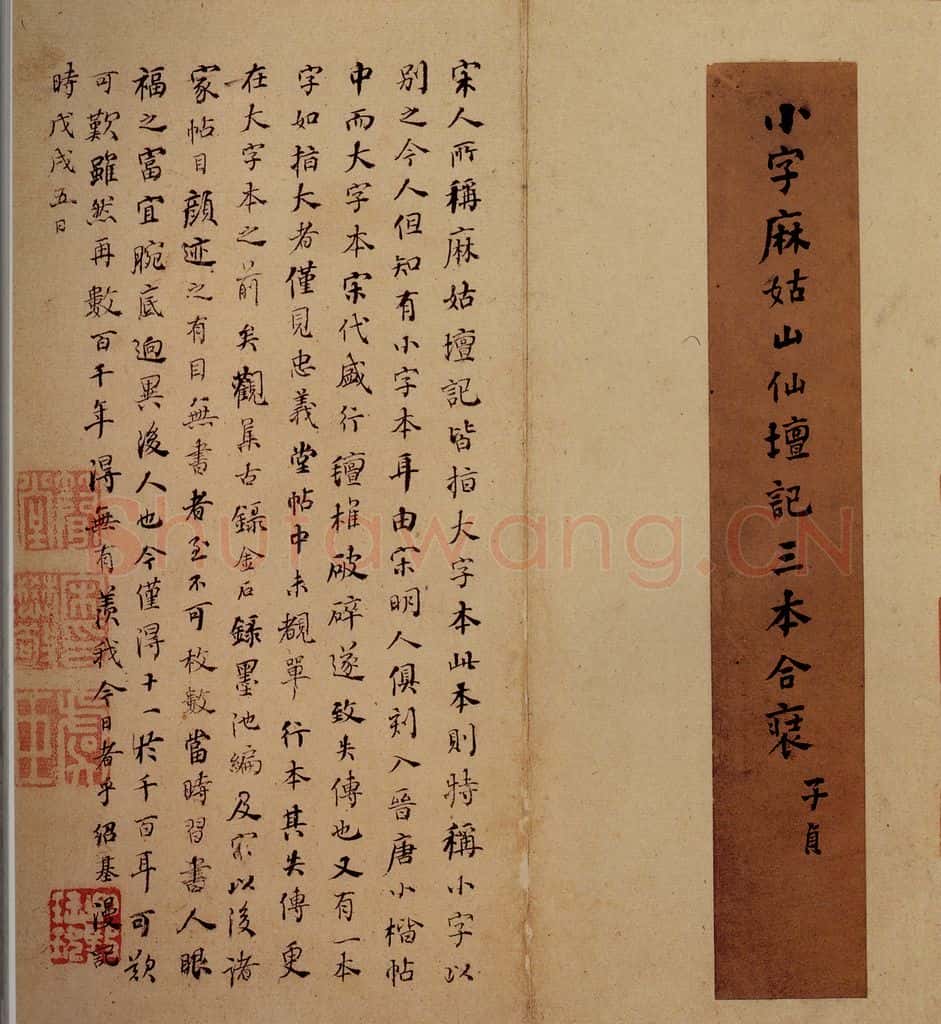 小字麻姑山仙壇記三本合裝
子貞
宋人所稱麻姑壇記皆指大字本此本則特稱小字以
別之今人但知有小字本耳由宋明人俱刻入晉唐小楷帖
中而大字本宋代盛行氊椎破碎遂致失傳也又有一本
字如指大者僅見忠義堂帖中未覩單行本其失傳更
在大字本之前矣觀集古錄金石錄墨池編及宋以後諸
家帖目顏迹之有目無書者至不可枚數當時習書人眼
福之富宜腕底迥異後人也今僅得十一於千百耳可歎
可歎雖然再數百千年得無有羨我今日者乎紹基漫記
時戊戌五日
Shufawang.CN